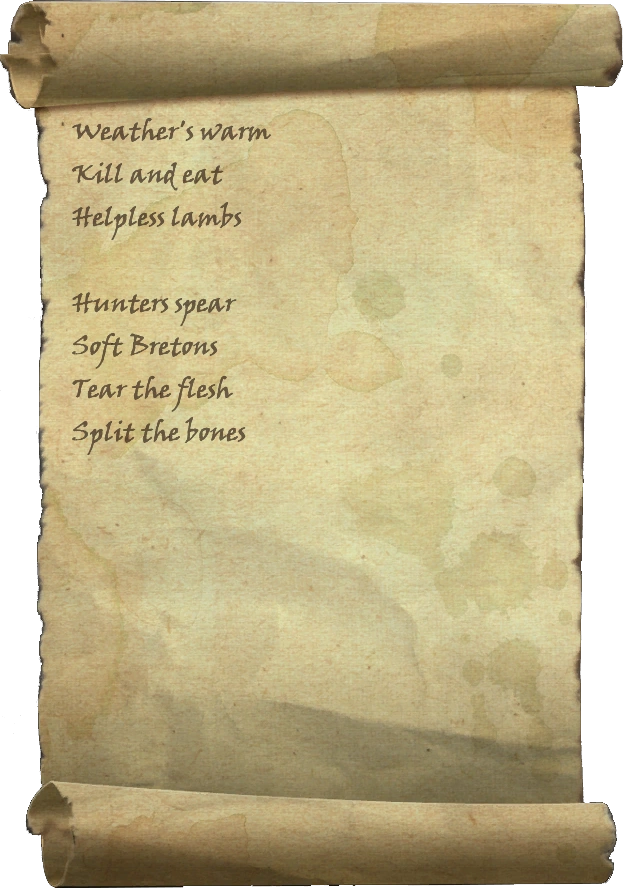 Weather's warm
Kill and eat
Helpless lambs
Hunters spear
Soft Bretons
Tear the flesh
Split the bones